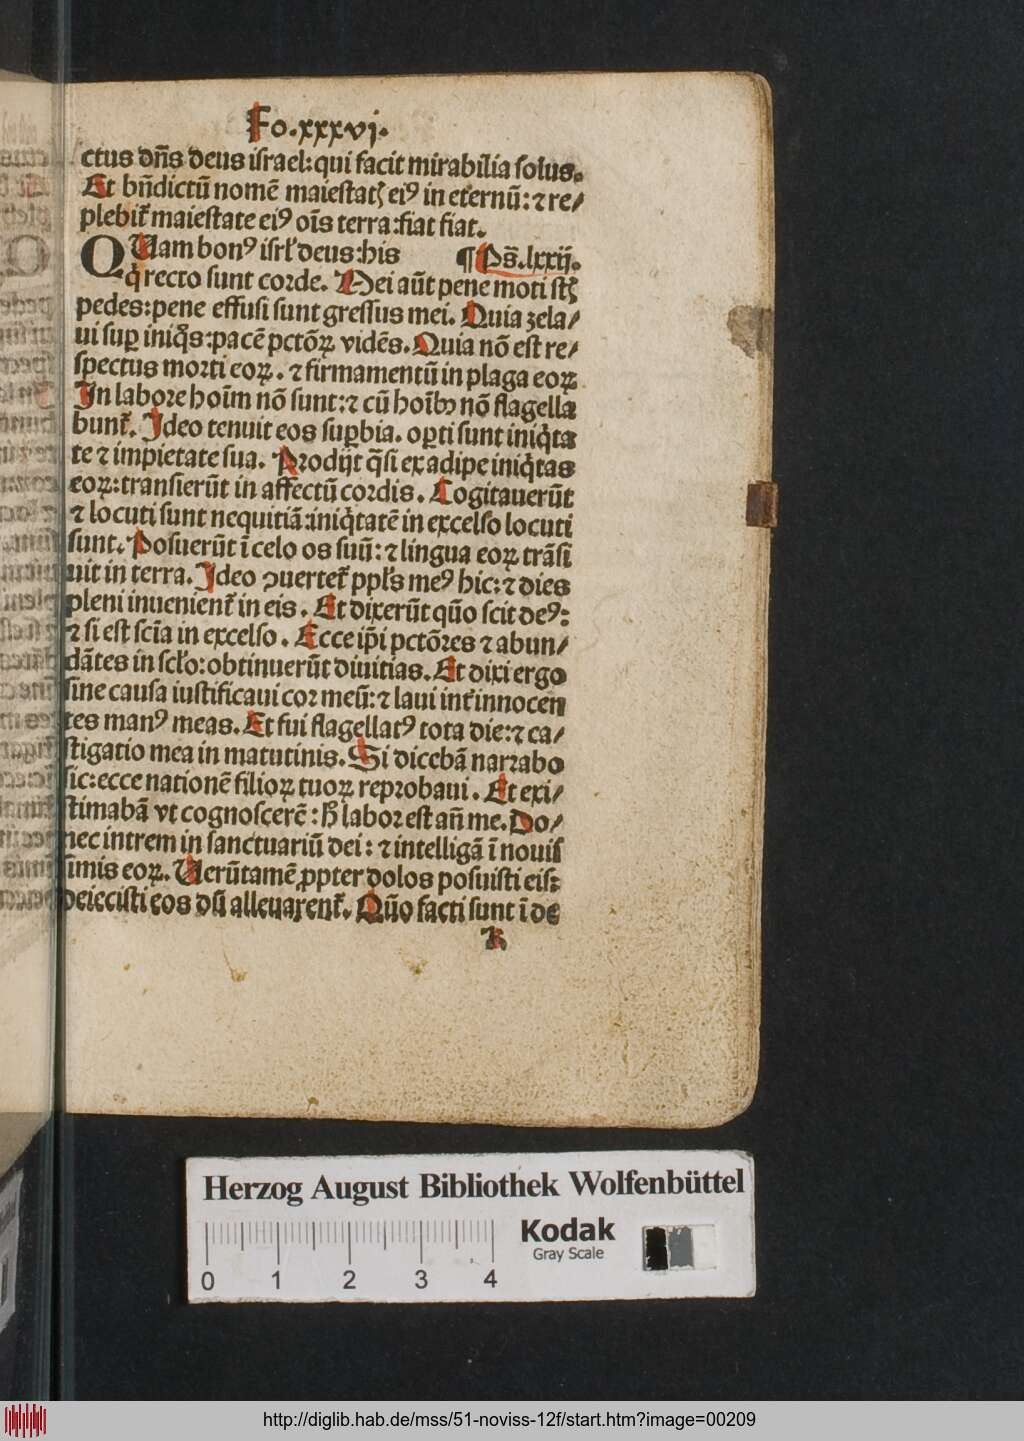 Fo.xxxvj.
ctus dn̄s deus israel: qui facit mirabilia solus.
Et bn̄dictū nomē maiestatꝭ eiꝰ in eternū: ⁊ re/
plebit᷑ maiestate eiꝰ oīs terra: fiat fiat.
QUam bonꝰ isrl̓ deus: his ¶ Ps̄.lxxij.
q̇ recto sunt corde. Mei aūt pene moti st̄ꝭ
pedes: pene effusi sunt gressus mei. Quia zela/
ui suꝑ iniq̄s: pacē pctōꝝ vidēs. Quia nō est re/
spectus morti eoꝝ. ⁊ firmamentū in plaga eoꝝ
In labore hoīm nō sunt: ⁊ cū hoībꝰ nō flagella
bunt᷑. Ideo tenuit eos suꝑbia. oꝑti sunt iniq̇ta
te ⁊ impietate sua. Prodijt q̄si ex adipe iniq̇tas
eoꝝ: transierūt in affectū cordis. Cogitauerūt
⁊ locuti sunt nequitiā: iniq̇tatē in excelso locuti
sunt. Posuerūt ī celo os suū: ⁊ lingua eoꝝ trāsi
uit in terra. Ideo ꝯuertet᷑ ppl̓s meꝰ hic: ⁊ dies
pleni inuenient᷑ in eis. Et dixerūt qūo scit deꝰ:
⁊ si est scīa in excelso. Ecce ip̄i pctōres ⁊ abun/
dātes in scl̓o: obtinuerūt diuitias. Et dixi ergo
sine causa iustificaui cor meū: ⁊ laui int᷑ innocen
tes manꝰ meas. Et fui flagellatꝰ tota die: ⁊ ca/
stigatio mea in matutinis. Si dicebā narrabo
sic: ecce nationē filioꝝ tuoꝝ reprobaui. Et exi/
stimabā vt cognoscerē: h̄ labor est an̄ me. Do/
nec intrem in sanctuariū dei: ⁊ intelligā ī nouis
simis eoꝝ. Uerūtamē ꝓpter dolos posuisti eis:
deiecisti eos dū alleuarent᷑. Qūo facti sunt ī de
k
Herzog August Bibliothek Wolfenbüttel
Kodak
Gray Scale
0 1 2 3 4
http://diglib.hab.de/mss/51-noviss-12f/start.htm?image=00209